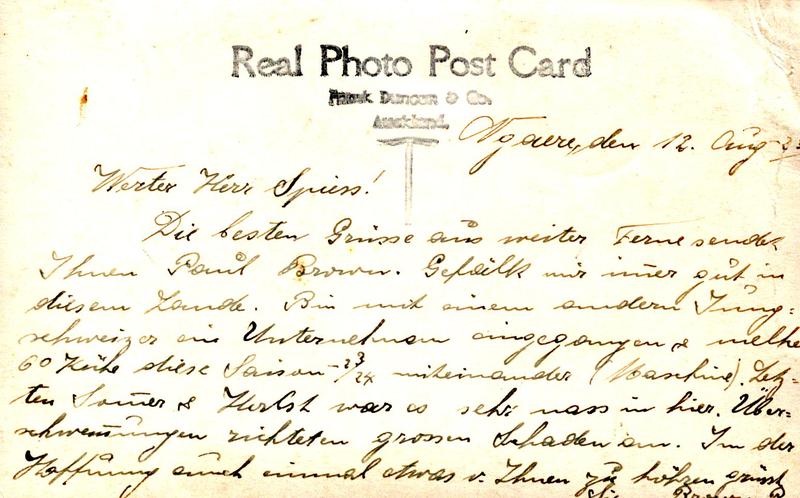 Real Photo Post Card
Frank Duncan & Co.
Auckland.
Ngaere, den 12. Aug. 23
Werter Herr Spiess!
Die besten Grüsse aus weiter Ferne sendet
Ihnen Paul Brown. Gefällt mir im̅er gut in
diesem Lande. Bin mit einem andern Jung-
schweizer ein Unternehmen eingegangen & melke
60 Kühe diese Saison 23/24 miteinander (Maschine). Letz-
ten Som̅er & Herbst war es sehr nass in hier. Über-
schwem̅ungen richteten grossen Schaden an. In der
Hoffnung auch einmal etwas v. Ihnen zu hören grüsst
Sie Brown P